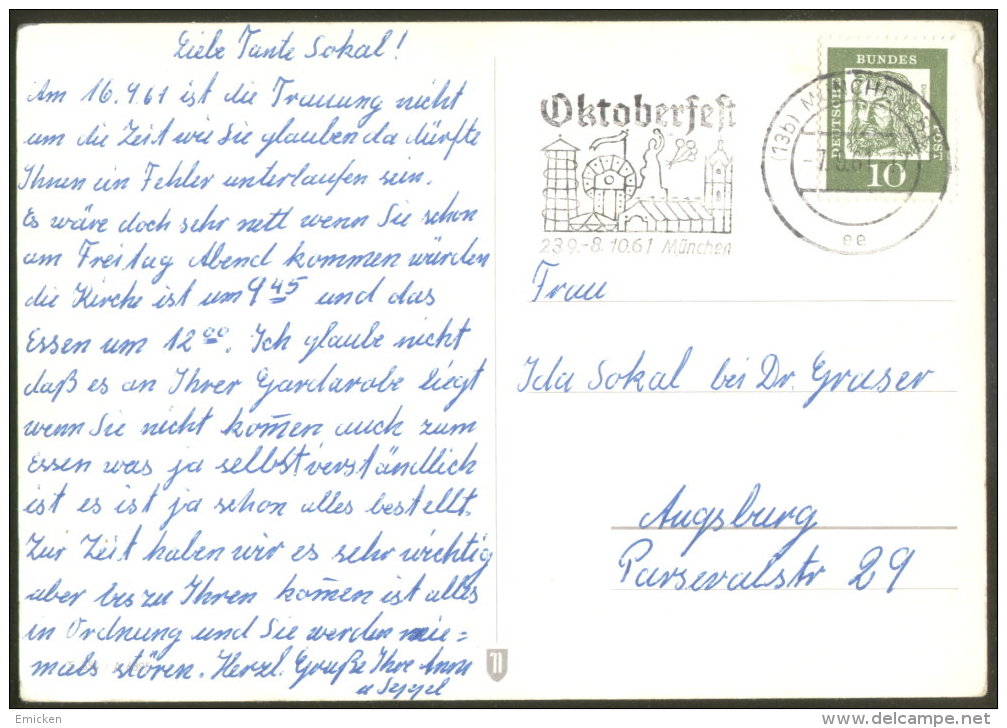 Liebe Tante Sokal!
Am 16.9.61 ist die Trauung nicht
um die Zeit wie Sie glauben da dürfte
Ihnen ein Fehler unterlaufen sein.
Es wäre doch sehr nett wenn Sie schon
am Freitag Abend kommen würden
die Kirche ist um 9 45 und das
Essen um 12 00. Ich glaube nicht
daß es an Ihrer Gardarobe liegt
wenn Sie nicht kom̄en auch zum
Essen was ja selbstverständlich
ist es ist ja schon alles bestellt.
Zur Zeit haben wir es sehr wichtig
aber bis zu Ihren kom̄en ist alles
in Ordnung und Sie werden nie=
mals stören. Herzl. Grüße Ihre Anni
u Seppel
Oktoberfest
23.9.-8.10.61 München
(13b) MÜNCHEN
ee
DEUTSCHE
BUNDES
POST
10
Frau
Ida Sokal bei Dr. Graser
Augsburg
Parsevalstr 29
Emicken
www.delcampe.net